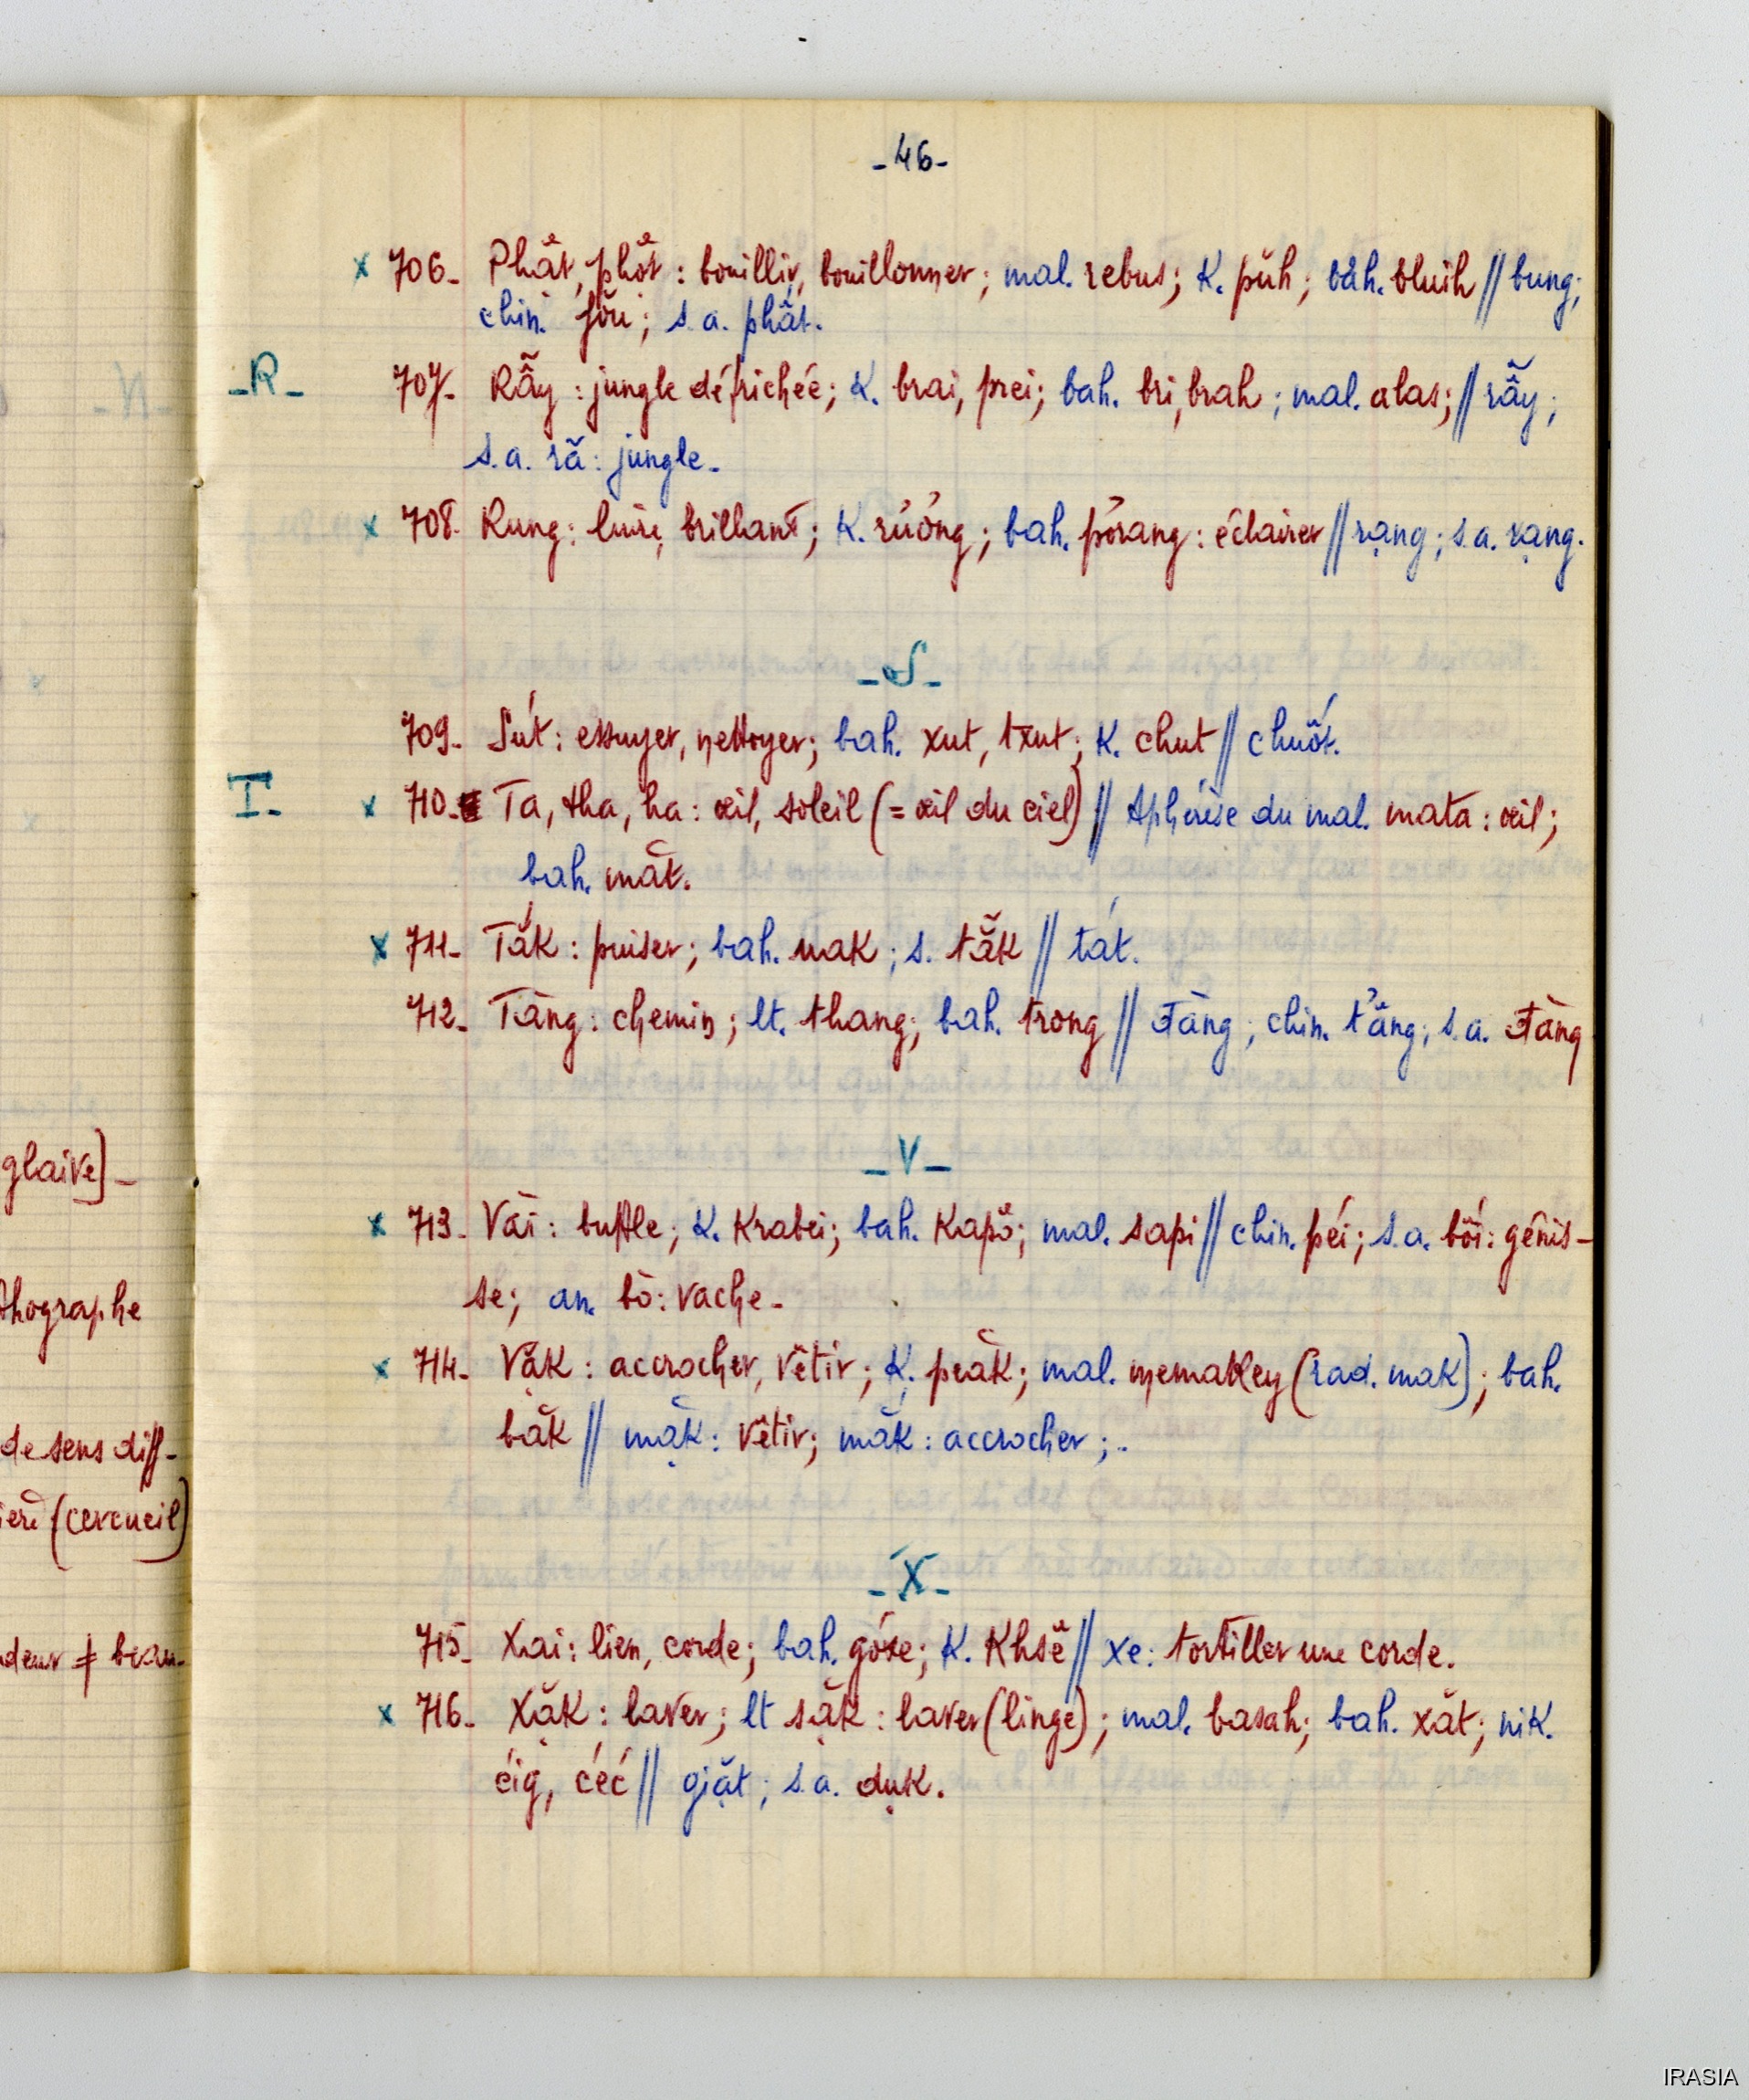 -46-
x 706- Phât, phôt : bouillir, bouillonner; mal. rebus; K. pŭh; bah. bluih // bung;
chin. fŏu; s.a. phất.
-R- 707- Rẫy : jungle défrichée; K. brai, prei; bah. bri, brah; mal. alas; // rẫy;
s.a. rã : jungle-
x 708- Rung : luire, brillant; K. rủỏng; bah. pơrang : éclairer // rạng; s.a. rạng.
-S-
709- Sút : essuyer, nettoyer; bah. xut, txut; K. chut // chuốt.
T- x 710- Ta, tha, ha : œil, soleil (= œil du ciel) // Aphérèse du mal. mata : œil;
bah. măt.
x 711- Ták : puiser; bah. uak; s. tăk // tát.
712- Tàng : chemin; lt. thang; bah. trong // Đàng; chin. t'ăng; s.a. Đàng
-V-
x 713- Vāi : buffle; K. Krabei; bah. Kapô; mal. sapi // chin. péi; s.a. bôi : génis-
se; an. bò : vache-
x 714- Vặk : accrocher, vêtir; K. peăk; mal. memakey (rad. mak); bah.
băk // mặk : vêtir; mắk : accrocher;.
-X-
715- Xai : lien, corde; bah. góxe; K. Khsĕ // xe : tortiller une corde.
x 716- Xặk : laver; lt sặk : laver (linge); mal. basah; bah. xăt; nik.
ćig, ćeć // gjặt; s.a. dụk.
glaive]-
thographe
de sens diff-
(cercueil)
≠
IRASIA